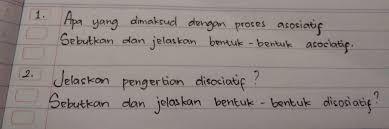 1. Apa yang dimaksud dengan proses asosiatif
Sebutkan dan jelaskan bentuk-bentuk asociatif.
2. Jelaskan pengertian disociatif?
Sebutkan dan jelaskan bentuk-bentuk disosiatif?